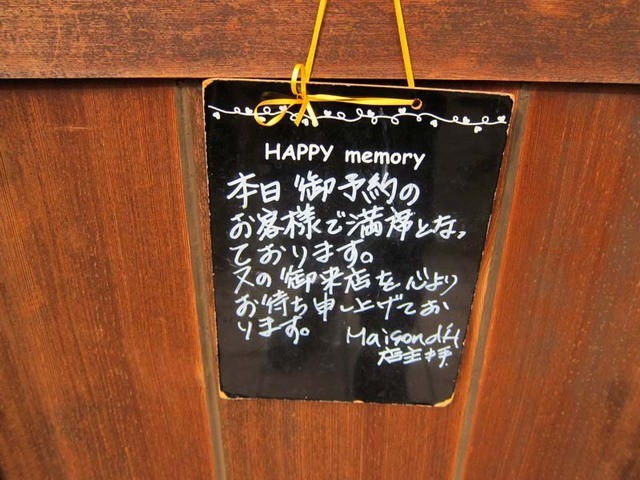 HAPPY memory
本日御予約の
お客様で満席となっ
ております。
又の御来店を心より
お待ち申し上げてお
ります。
店主拝